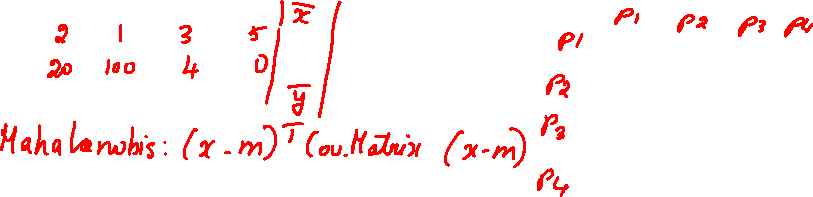 2 1 3 5 | x̄ |
20 100 4 0 | ȳ |
Mahalanobis: (x - m)ᵀ Cov. Matrix (x-m)
P1 P2 P3 P4
P1
P2
P3
P4